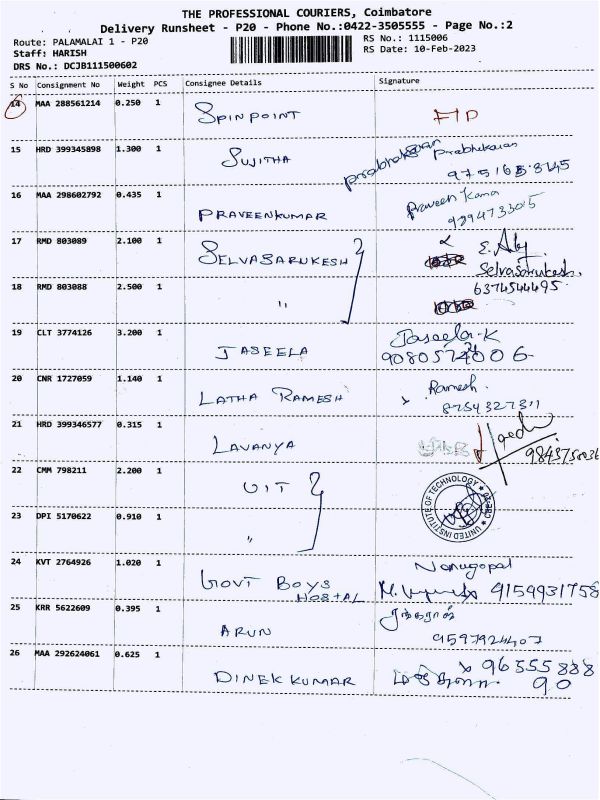 THE PROFESSIONAL COURIERS, Coimbatore
Delivery Runsheet - P20 - Phone No.:0422-3505555 - Page No.:2
Route: PALAMALAI 1 - P20
Staff: HARISH
DRS No.: DCJB111500602
RS No.: 1115006
RS Date: 10-Feb-2023
S No Consignment No Weight PCS Consignee Details Signature
14 MAA 288561214 0.250 1 SPINPOINT
15 HRD 399345898 1.300 1 SUJITHA prabhakaran Prabhakaran
16 MAA 298602792 0.435 1 PRAVEENKUMAR Praveen Kumar
17 RMD 803089 2.100 1 SELVASARUKESH Selvasarukesh
6374544495
18 RMD 803088 2.500 1 "
19 CLT 3774126 3.200 1 JASEELA Jaseela.K
20 CNR 1727059 1.140 1 LATHA RAMESH Ramesh
8754327311
21 HRD 399346577 0.315 1 LAVANYA
22 CMM 798211 2.200 1 UIT UNITED INSTITUTE OF TECHNOLOGY
23 DPI 5170622 0.910 1 "
24 KVT 2764926 1.020 1 GOVT BOYS HOSTAL Nanugopal
9159931758
25 KRR 5622609 0.395 1 ARUN
9597924407
26 MAA 292624061 0.625 1 DINEKKUMAR 96555888
90